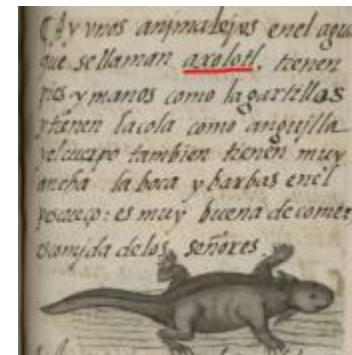 ¶Ay unos animalejos enel agua
que sellaman axolotl, tienen
pies y manos como lagartillas
y tienen lacola como anguilla
yelcuerpo tambien tienen muy
ancha la boca y barbas enel
pescueço: es muy buena de comer,
escomida delos señores.